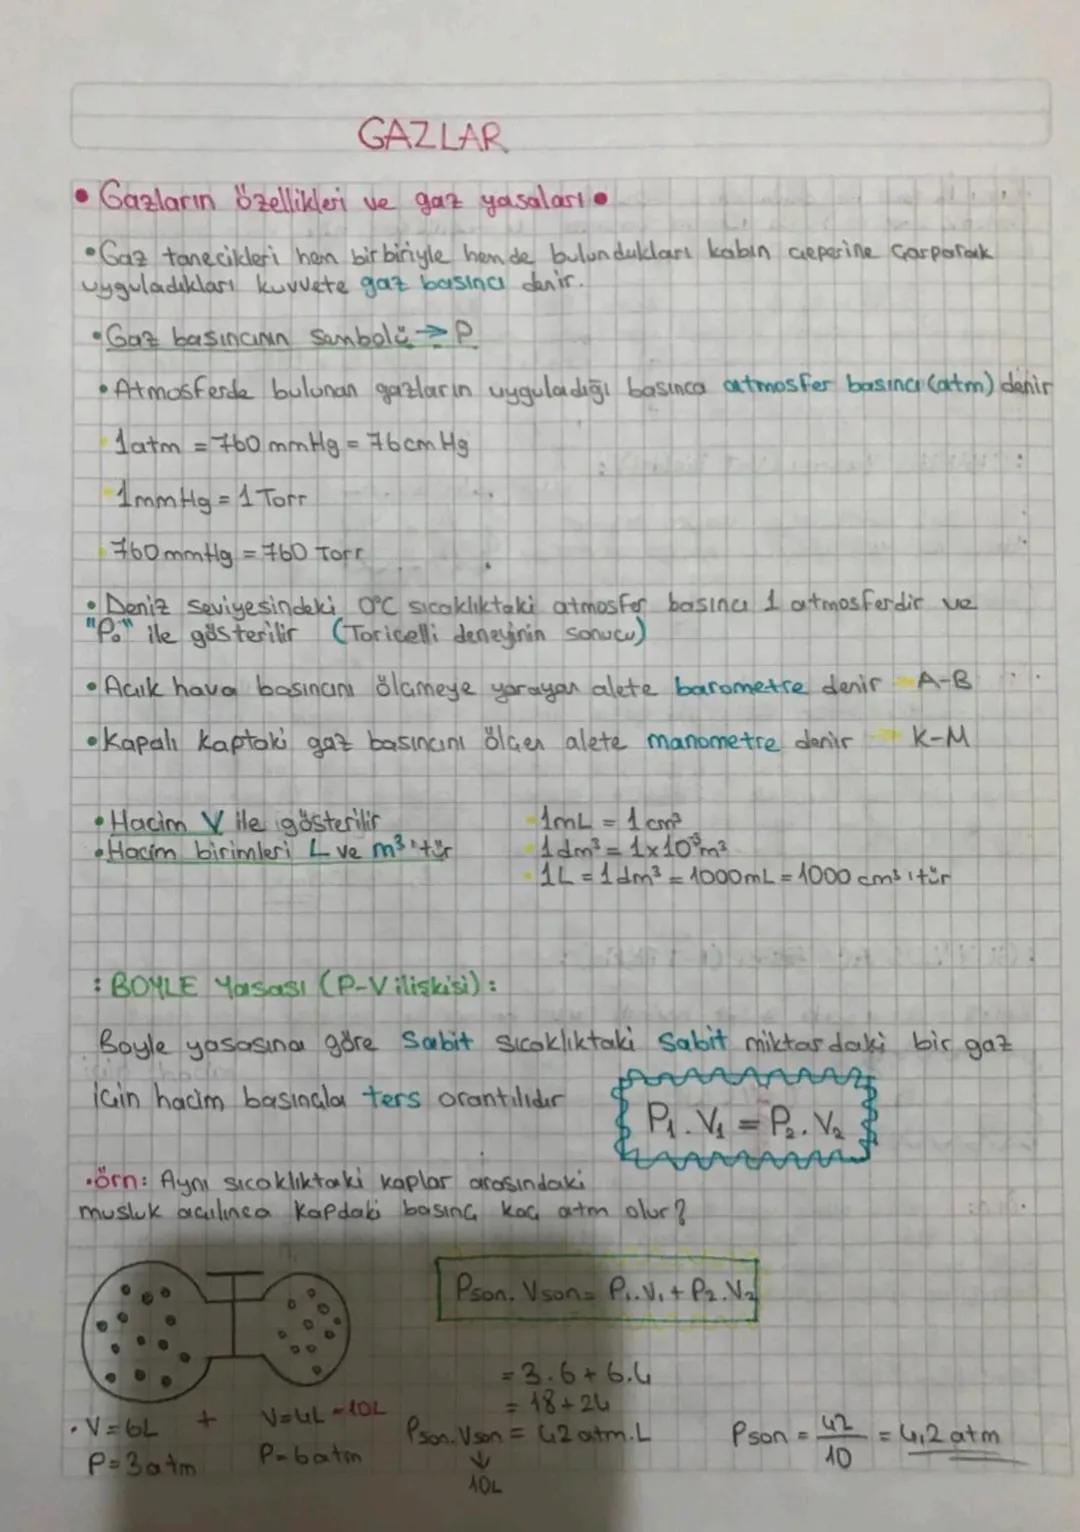 GAZLAR
• Gazların özellikleri ve gaz yasaları •
• Gaz tanecikleri hem birbiriyle hem de bulundukları kabın çeperine çarparak
uyguladıkları kuvvete gaz basıncı denir.
• Gaz basıncının Sembolü → P
• Atmosferde bulunan gazların uyguladığı basınca atmosfer basıncı (atm) denir
1atm = 760 mmHg = 76cm Hg
1mmHg = 1 Torr
760mmHg = 760 Torr
• Deniz Seviyesindeki 0°C sıcaklıktaki atmosfer basıncı 1 atmosferdir ve
"P₀" ile gösterilir (Toricelli deneyinin sonucu)
• Açık hava basıncını ölçmeye yarayan alete barometre denir A-B
• Kapalı kaptaki gaz basıncını ölçen alete manometre denir → K-M
• Hacim V ile gösterilir
• Hacim birimleri L ve m³'tür
1mL = 1cm³
1dm³ = 1x10⁻³m³
1L = 1dm³ = 1000mL = 1000 cm³'tür
: BOYLE Yasası (P-V ilişkisi) :
Boyle yasasına göre Sabit sıcaklıktaki Sabit miktardaki bir gaz
için hacim basınçla ters orantılıdır
P₁ . V₁ = P₂ . V₂
• örn: Aynı sıcaklıktaki kaplar arasındaki
musluk açılınca Kapdaki basınç kaç atm olur?
Pson. Vson = P₁.V₁ + P₂.V₂
= 3.6 + 6.4
= 18 + 24
• V = 6L + V=4L = 10L
P=3atm P=6atm
Pson.Vson = 42 atm.L
↓
10L
Pson = 42/10 = 4,2 atm